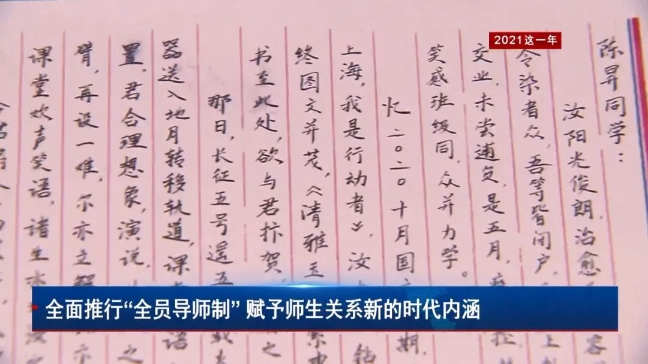 2021这一年
陈昇同学：
汝阳光俊朗，治愈
令染者众，吾等皆闭户
交业，未尝逋负，是五月，
笑感班级同，众并力学。
忆二〇二〇十月国
上海，我是行动者》，汝
终图文并茂，《清雅玉
书至此处，欲与君抃贺，
那日，长征五号遥五
器送入地月转移轨道，课
置，君合理想象，演说
臂，再设一难，尔亦立
课堂欢声笑语，诸生
全面推行“全员导师制” 赋予师生关系新的时代内涵